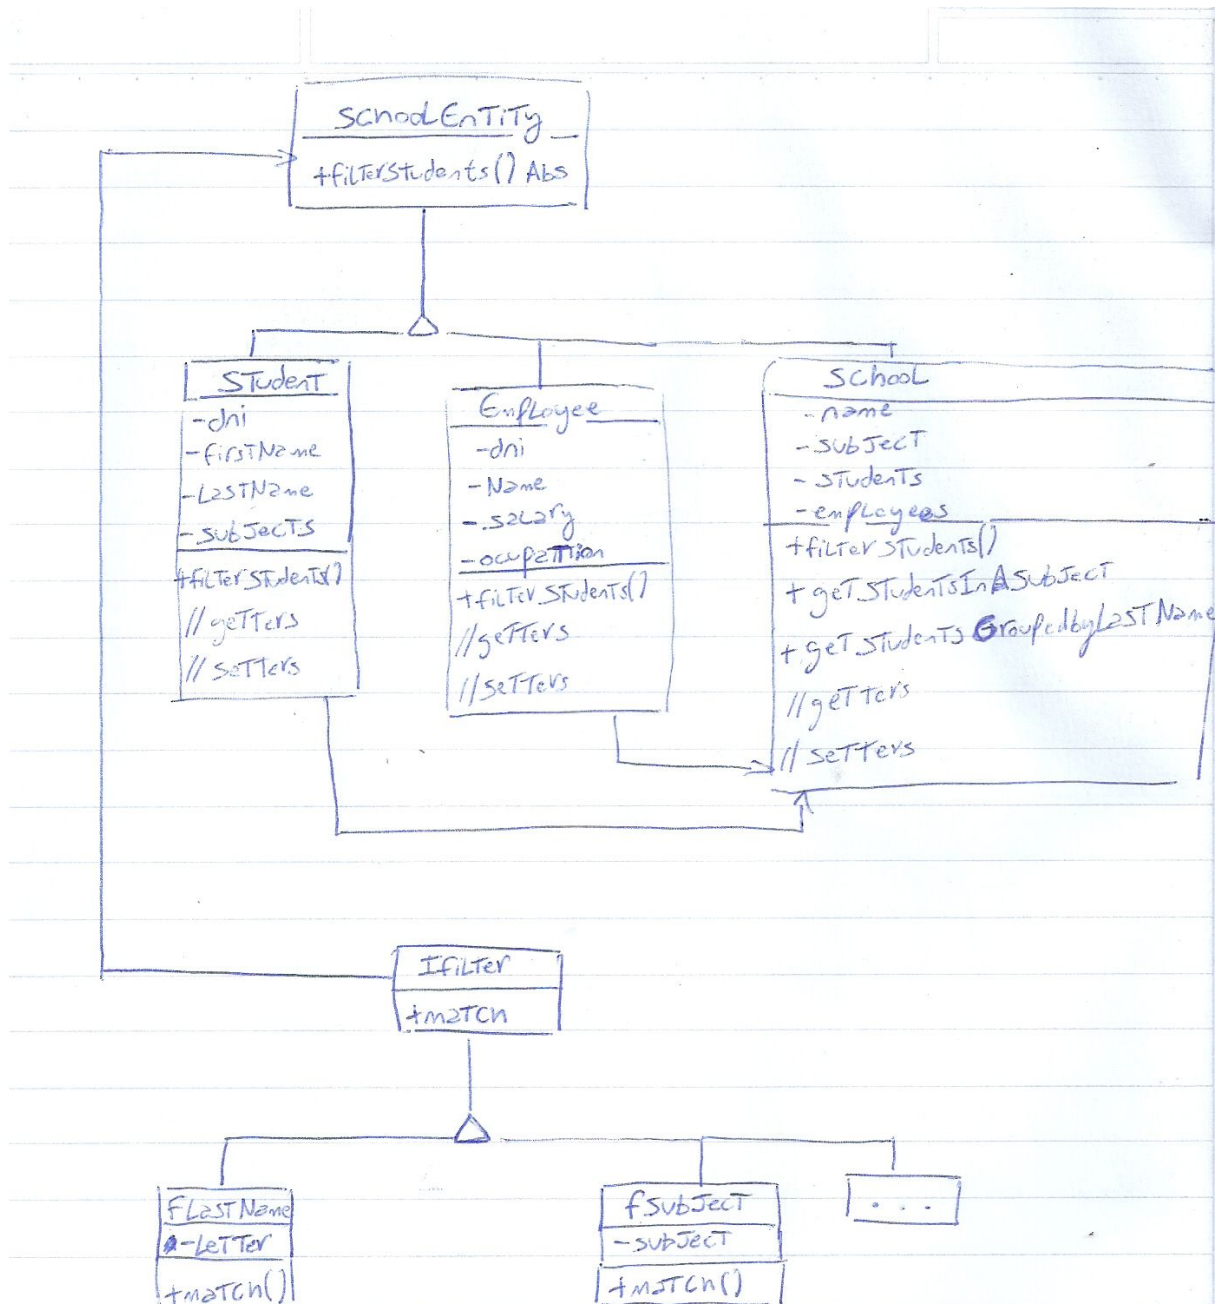 SchoolEnTiTy
+filTerStudents() Abs
STudenT
-dni
-firsTName
-LasTName
-subJecTs
+filTerSTudenTs()
//geTTers
//seTTers
EmpLoyee
-dni
-Name
-salary
-ocupaTTion
+filTerSTudenTs()
//geTTers
//seTTers
SchooL
-name
-subJecT
-sTudenTs
-empLoyees
+filTerSTudenTs()
+geTSTudenTsInASubJecT
+geTSTudenTsGroupedbyLasTName
//geTTers
//seTTers
IfiLTer
+maTch
FLasTName
-LeTTer
+maTch()
fSubJecT
-subJecT
+maTch()
...